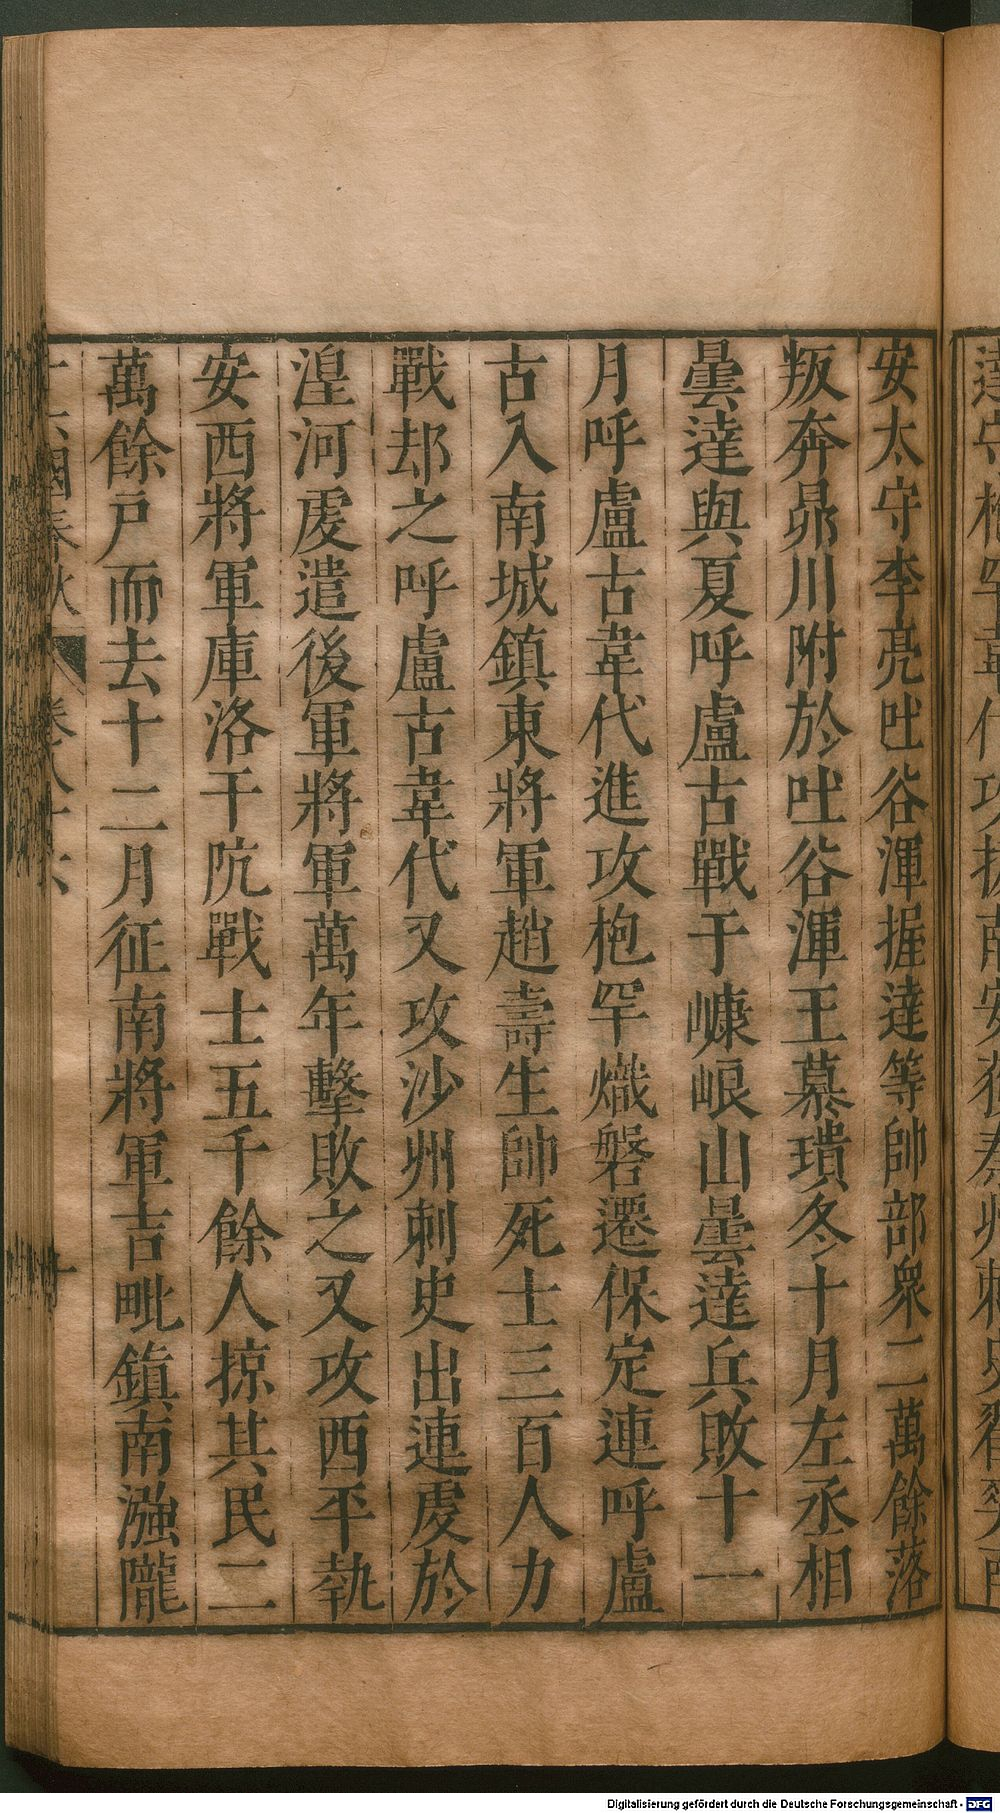 安太守李亮吐谷渾握達等帥部衆二萬餘落
叛奔昴川附於吐谷渾王慕璝冬十月左丞相
曇達與夏呼盧古戰于嵻㟍山曇達兵敗十一
月呼盧古韋代進攻枹罕熾磐遷保定連呼盧
古入南城鎮東將軍趙壽生帥死士三百人力
戰却之呼盧古韋代又攻沙州刺史出連虔於
湟河虔遣後軍將軍萬年擊敗之又攻西平執
安西將軍庫洛干阬戰士五千餘人掠其民二
萬餘戶而去十二月征南將軍吉毗鎮南漒隴
Digitalisierung gefördert durch die Deutsche Forschungsgemeinschaft - DFG